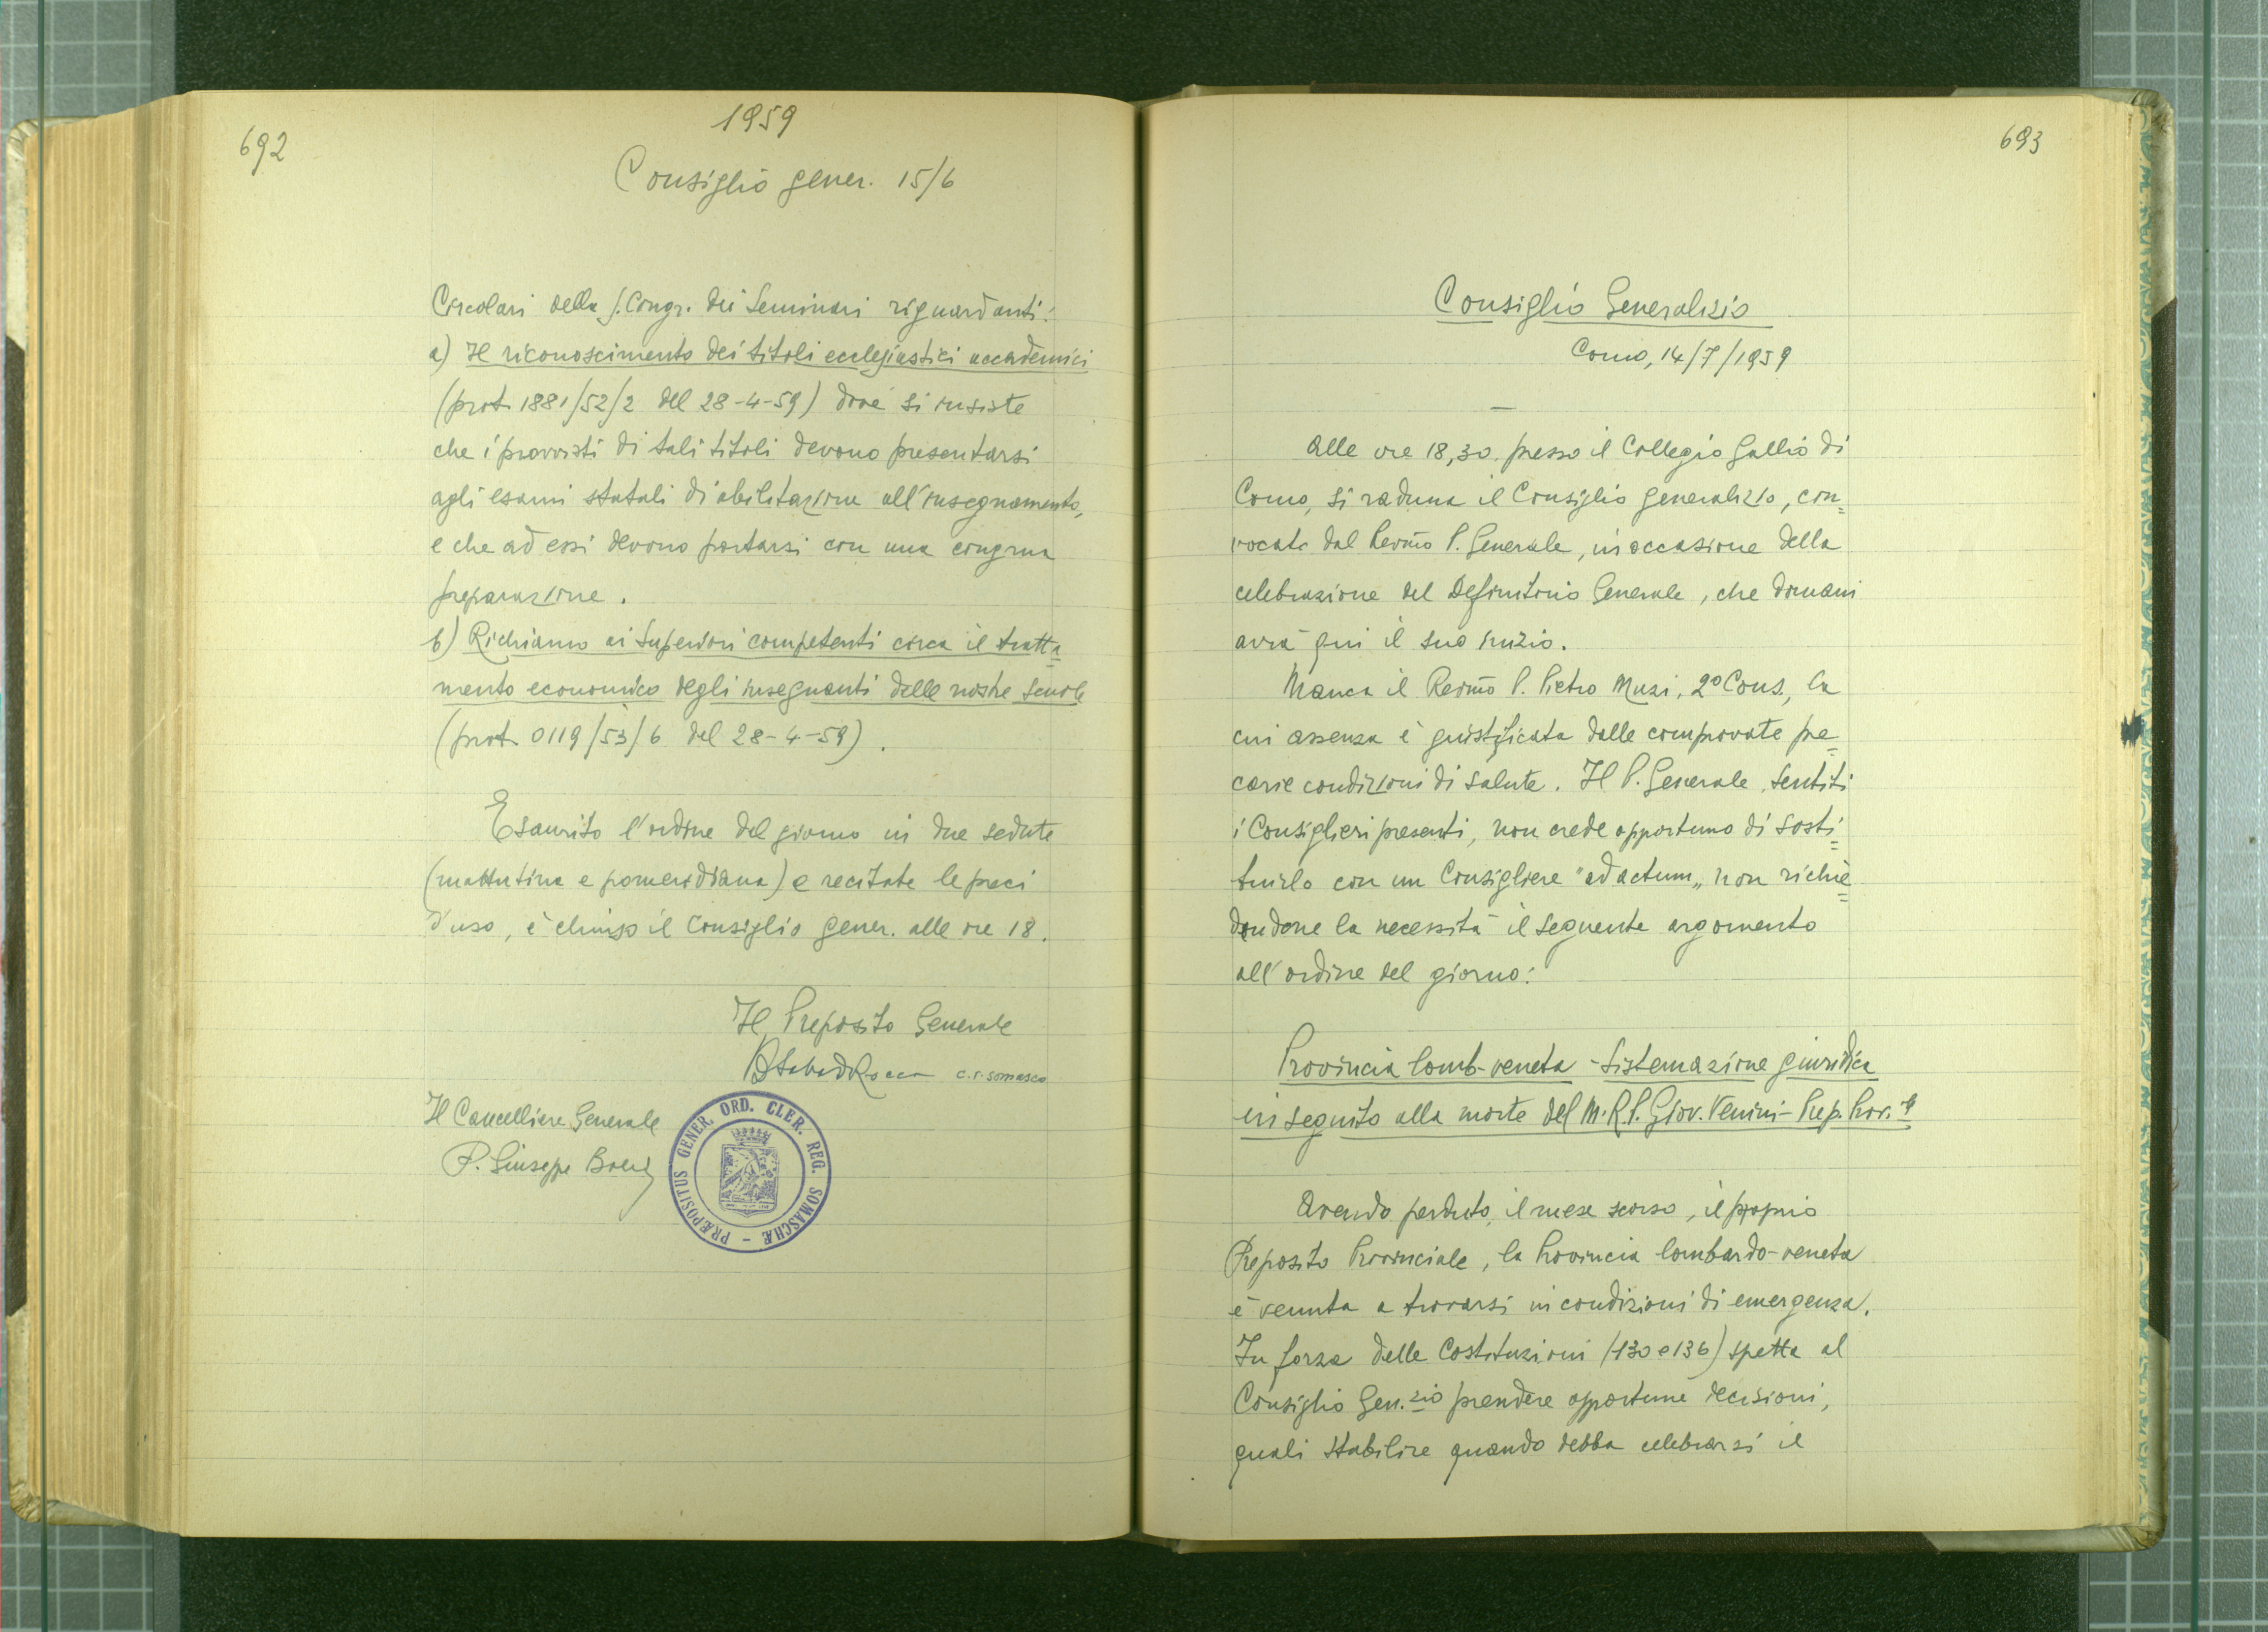 692
1959
Consiglio gener. 15/6
Circolari della S. Congr. dei Seminari riguardanti:
a) Il riconoscimento dei titoli ecclesiastici accademici
(prot. 1881/52/2 del 28-4-59) dove si insiste
che i provvisti di tali titoli devono presentarsi
agli esami statali di abilitazione all'insegnamento,
e che ad essi devono portarsi con una congrua
preparazione.
b) Richiamo ai Superiori competenti circa il tratta=
mento economico degli insegnanti delle nostre scuole
(prot. 0119/53/6 del 28-4-59).
Esaurito l'ordine del giorno in due sedute
(mattutina e pomeridiana) e recitate le preci
d'uso, è chiuso il Consiglio gener. alle ore 18.
Il Preposito Generale
c.r. somasco
Il Cancelliere Generale
P. Giuseppe
PRÆPOSITUS GENER. ORD. CLER. REG. SOMASCHÆ -
693
Consiglio Generalizio
Como, 14/7/1959
Alle ore 18,30 presso il Collegio Gallio di
Como, si raduna il Consiglio generalizio, con=
vocato dal Rev.mo P. Generale, in occasione della
celebrazione del Definitorio Generale, che domani
avrà qui il suo inizio.
Manca il Rev.mo P. Pietro Muzi, 2º Cons., la
cui assenza è giustificata dalle comprovate pre=
carie condizioni di salute. Il P. Generale, sentiti
i Consiglieri presenti, non crede opportuno di sosti=
tuirlo con un Consigliere "ad actum" non richie=
dendone la necessità il seguente argomento
all'ordine del giorno:
Provincia lomb-veneta - Sistemazione giuridica
in seguito alla morte del M.R.P. Giov. Venini - Prep. Prov.le
Avendo perduto, il mese scorso, il proprio
Preposito Provinciale, la Provincia lombardo-veneta
è venuta a trovarsi in condizioni di emergenza.
In forza delle Costituzioni (130 e 136) spetta al
Consiglio Gen.zio prendere opportune decisioni,
quali stabilire quando debba celebrarsi il